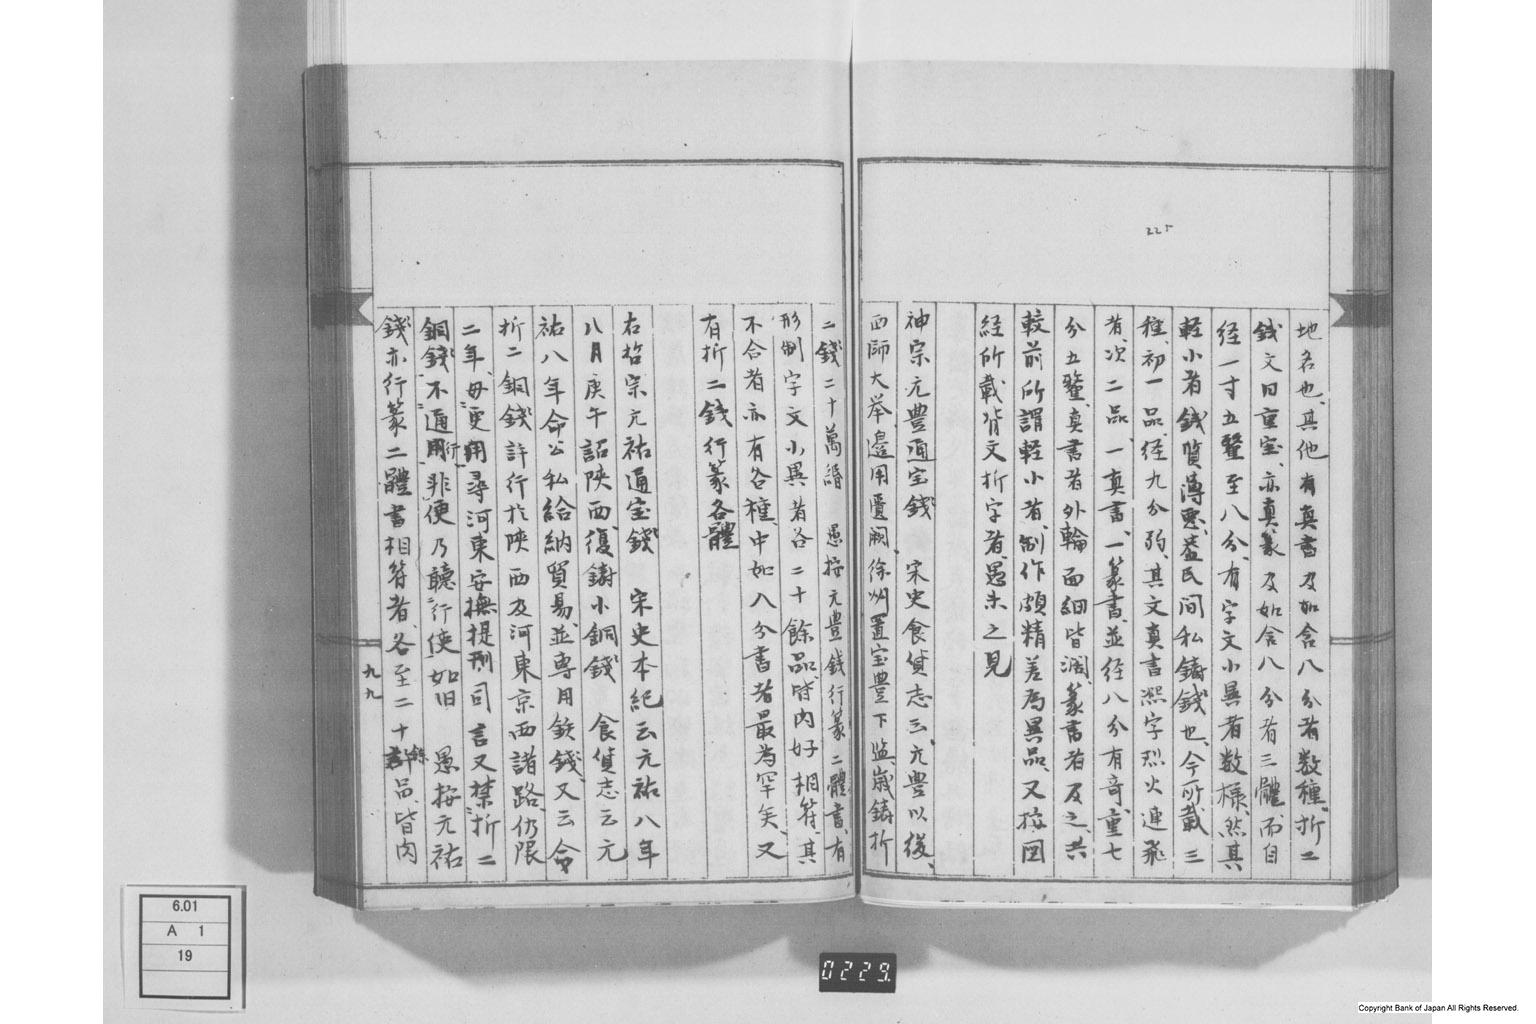 225
地名也、其他有真書及如含八分者数種、折二
銭文曰重宝、亦真篆及如含八分有三體、而自
径一寸五釐至八分、有字文小異者数様、然其
軽小者銭質薄悪、蓋民间私鋳銭也、今所載三
種、初一品、径九分弱、其文真書熙字烈火連飛
者、次二品、一真書、一篆書、並径八分有奇、重七
分五釐、真書者外輪面細皆濶、篆書者及之、共
較前所謂軽小者、制作頗精差為異品、又按図
経所載背文折字者、愚未之見
神宗元豊通宝銭 宋史食貨志云、元豊以後、
西師大举、邉用匱闕、徐州置宝豊下監、歳鋳折
二銭二十萬緡 愚按元豊銭行篆二體書、有
形制字文小異者各二十餘品、皆内好相符、其
不合者亦有各種、中如八分書者最為罕矣、又
有折二銭行篆各體
右哲宗元祐通宝銭 宋史本紀云元祐八年
八月庚午詔陝西、復鋳小銅銭 食貨志云元
祐八年命公私給納貿易並専用鉄銭、又云命
折二銅銭許行於陝西及河東京西諸路仍限
二年、毋更用尋河東安撫提刑司言又禁折二
銅銭不通行用非便乃聴行使如旧 愚按元祐
銭亦行篆二體書相符者、各至二十餘品、皆内
九九
6.01
A 1
19
0229
Copyright Bank of Japan All Rights Reserved.